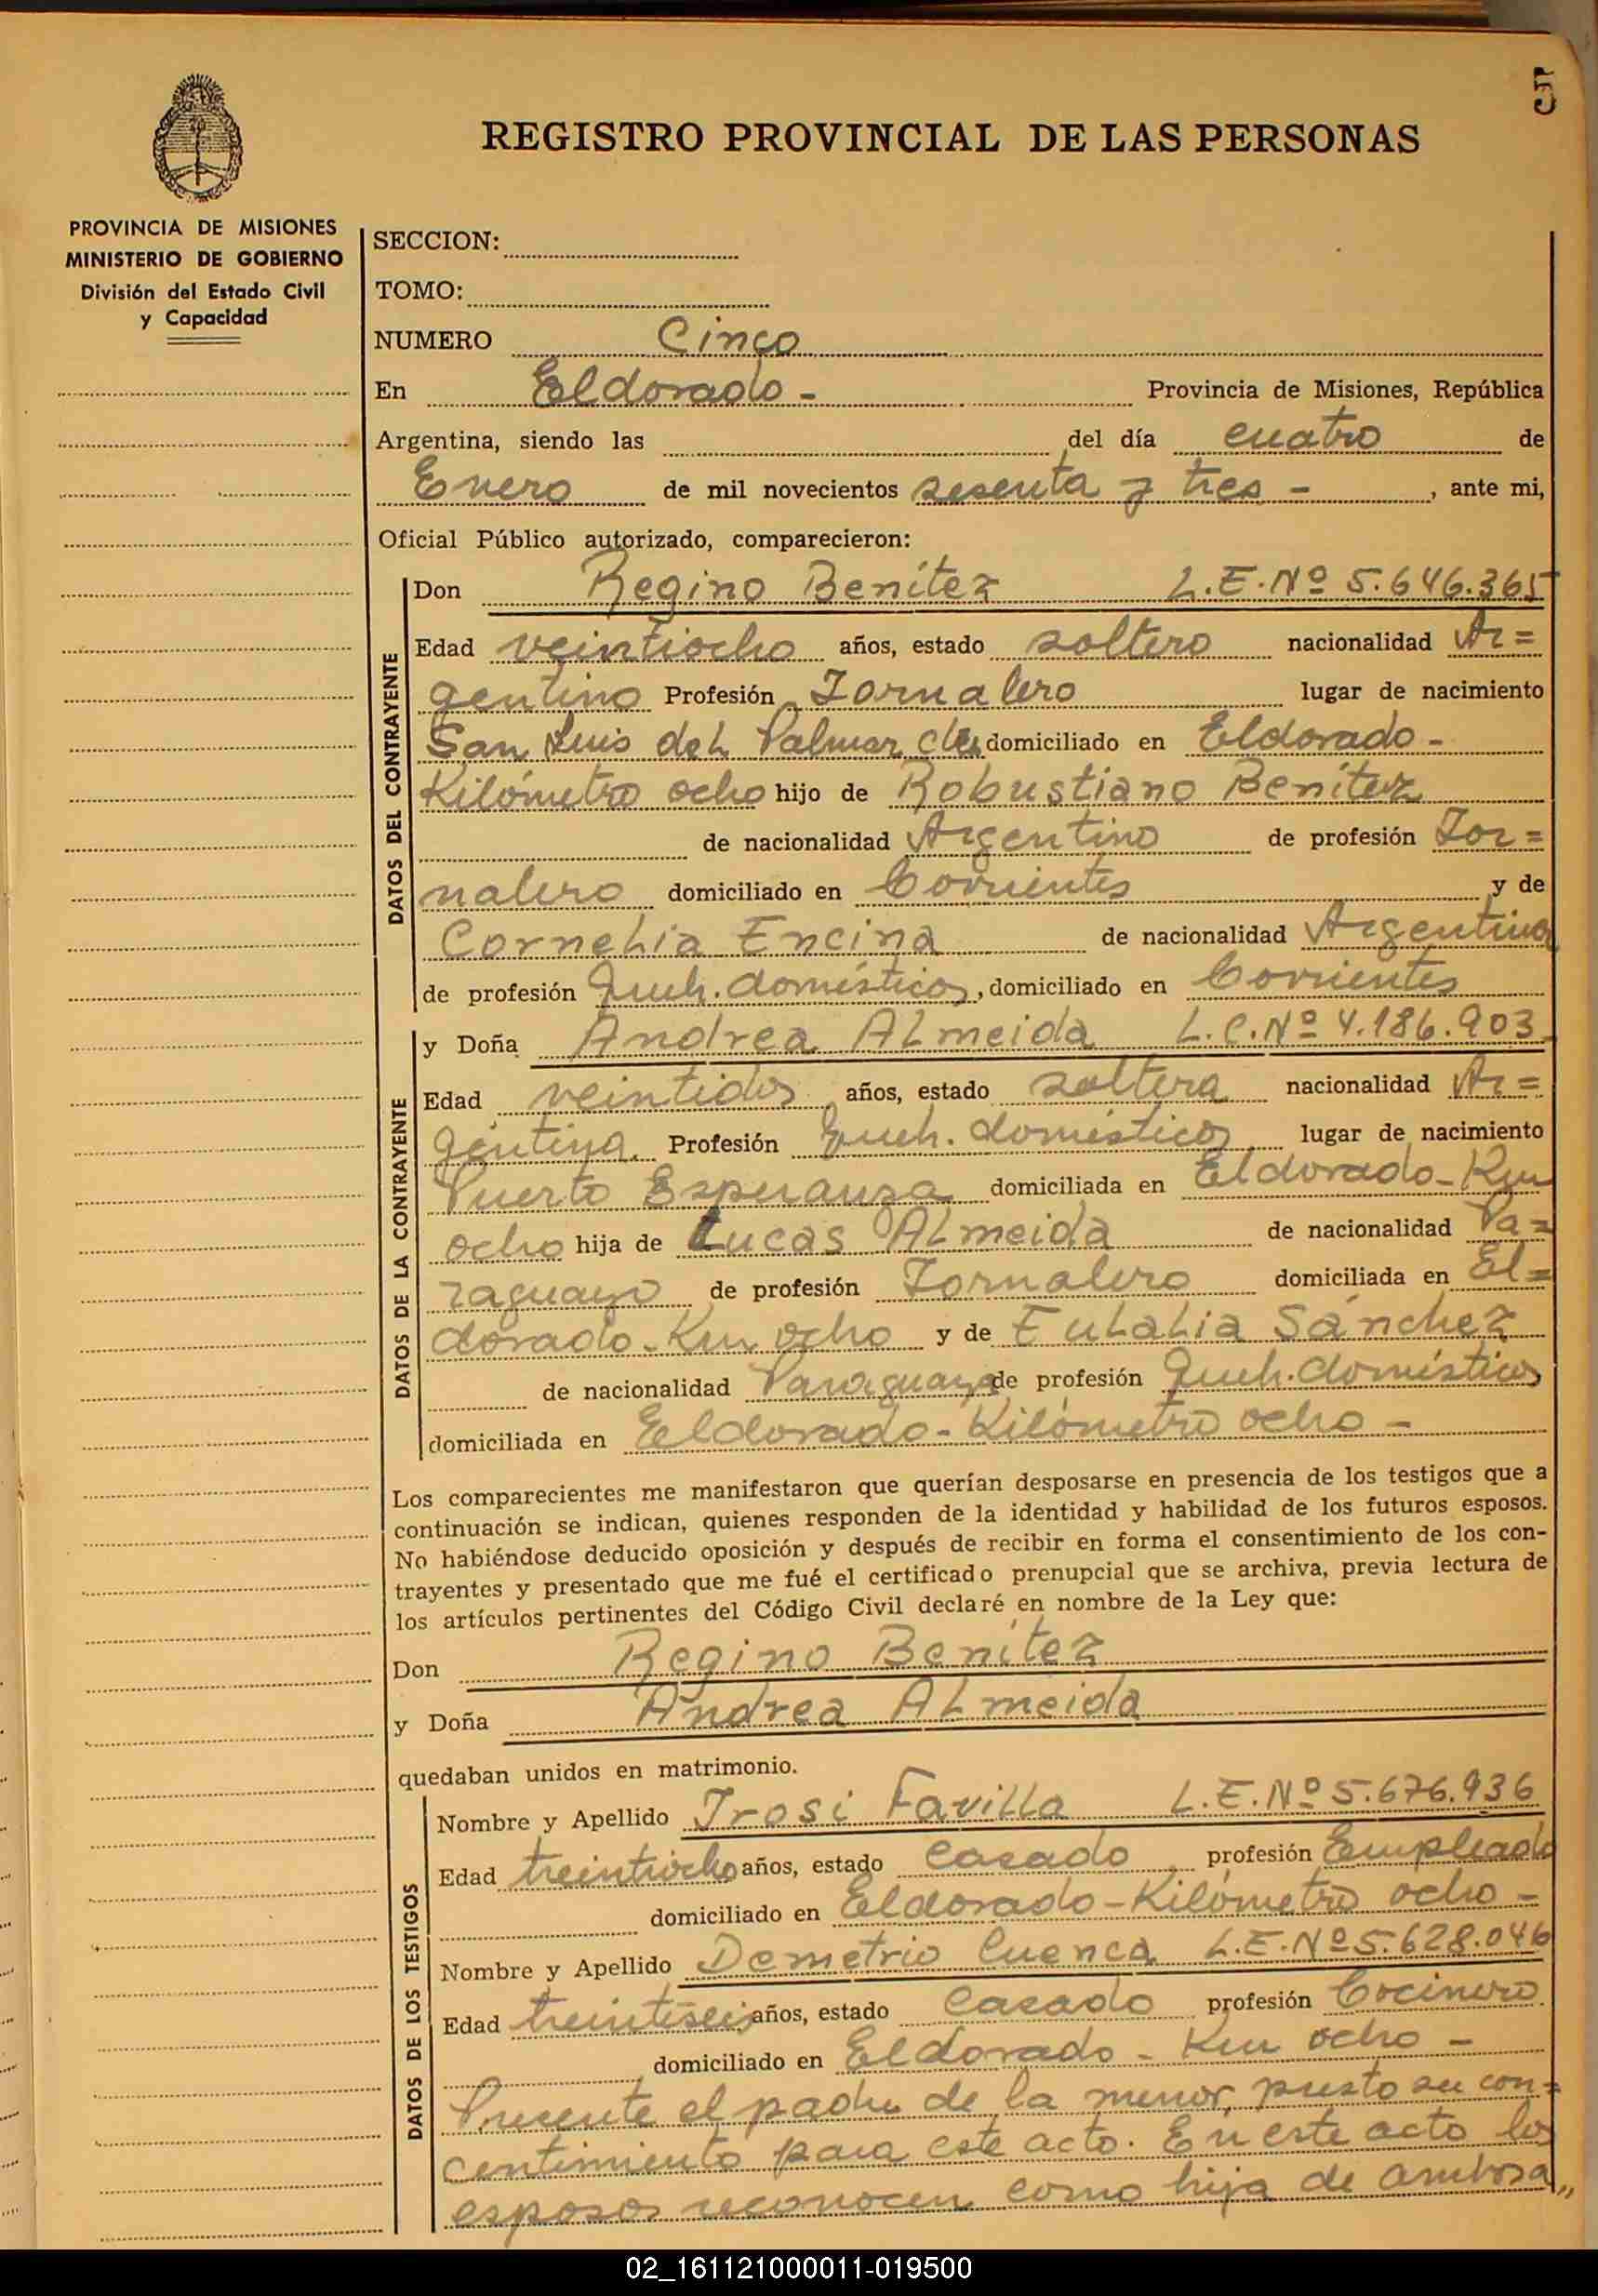 5
REGISTRO PROVINCIAL DE LAS PERSONAS
PROVINCIA DE MISIONES
MINISTERIO DE GOBIERNO
División del Estado Civil
y Capacidad
SECCION:
TOMO:
NUMERO Cinco
En Eldorado - Provincia de Misiones, República
Argentina, siendo las del día cuatro de
Enero de mil novecientos sesenta y tres - , ante mi,
Oficial Público autorizado, comparecieron:
DATOS DEL CONTRAYENTE
Don Regino Benítez L.E.Nº 5.646.365
Edad veintiocho años, estado soltero nacionalidad Ar=
gentino Profesión Jornalero lugar de nacimiento
San Luis del Palmar domiciliado en Eldorado -
Kilómetro ocho hijo de Robustiano Benítez
de nacionalidad Argentino de profesión Jor=
nalero domiciliado en Corrientes y de
Cornelia Encina de nacionalidad Argentina
de profesión Queh. domésticos, domiciliado en Corrientes
DATOS DE LA CONTRAYENTE
y Doña Andrea Almeida L.C.Nº 4.186.903
Edad veintidos años, estado soltera nacionalidad Ar=
gentina. Profesión Queh. domésticos lugar de nacimiento
Puerto Esperanza domiciliada en Eldorado - Km
ocho hija de Lucas Almeida de nacionalidad Pa=
raguayo de profesión Jornalero domiciliada en El=
dorado - Km ocho y de Eulalia Sánchez
de nacionalidad Paraguaya de profesión Queh. domésticos
domiciliada en Eldorado - Kilómetro ocho -
Los comparecientes me manifestaron que querían desposarse en presencia de los testigos que a
continuación se indican, quienes responden de la identidad y habilidad de los futuros esposos.
No habiéndose deducido oposición y después de recibir en forma el consentimiento de los con-
trayentes y presentado que me fué el certificado prenupcial que se archiva, previa lectura de
los artículos pertinentes del Código Civil declaré en nombre de la Ley que:
Don Regino Benítez
y Doña Andrea Almeida
quedaban unidos en matrimonio.
DATOS DE LOS TESTIGOS
Nombre y Apellido Irosi Favilla L.E.Nº 5.676.936
Edad treintiocho años, estado casado profesión Empleado
domiciliado en Eldorado - Kilómetro ocho -
Nombre y Apellido Demetrio Cuenca L.E.Nº 5.628.046
Edad treintiseis años, estado casado profesión Cocinero
domiciliado en Eldorado - Km ocho -
Presente el padre de la menor, presto su con=
centimiento para este acto. En este acto los
esposos reconocen como hija de ambos a,,
02_161121000011-019500